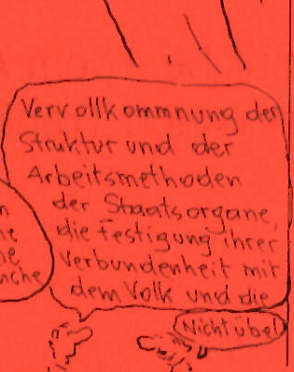 Vervollkommnung der
Struktur und der
Arbeitsmethoden
der Staatsorgane,
die Festigung ihrer
Verbundenheit mit
dem Volk und die
Nicht übel